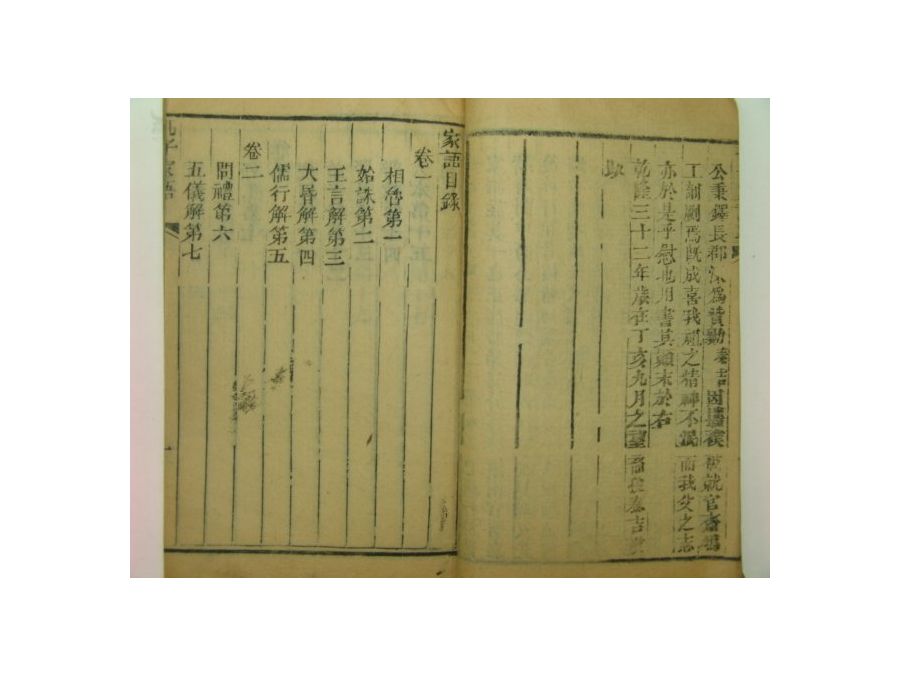 公秉鐸長郡 為贊勷
工剞劂焉旣成喜我祖之精神不泯而我父之志
亦於是乎慰也用書其顛末於右
乾隆三十二年歲在丁亥九月之望
跋
家語目錄
卷一
相魯第一
始誅第二
王言解第三
大昏解第四
儒行解第五
卷二
問禮第六
五儀解第七
孔子家語